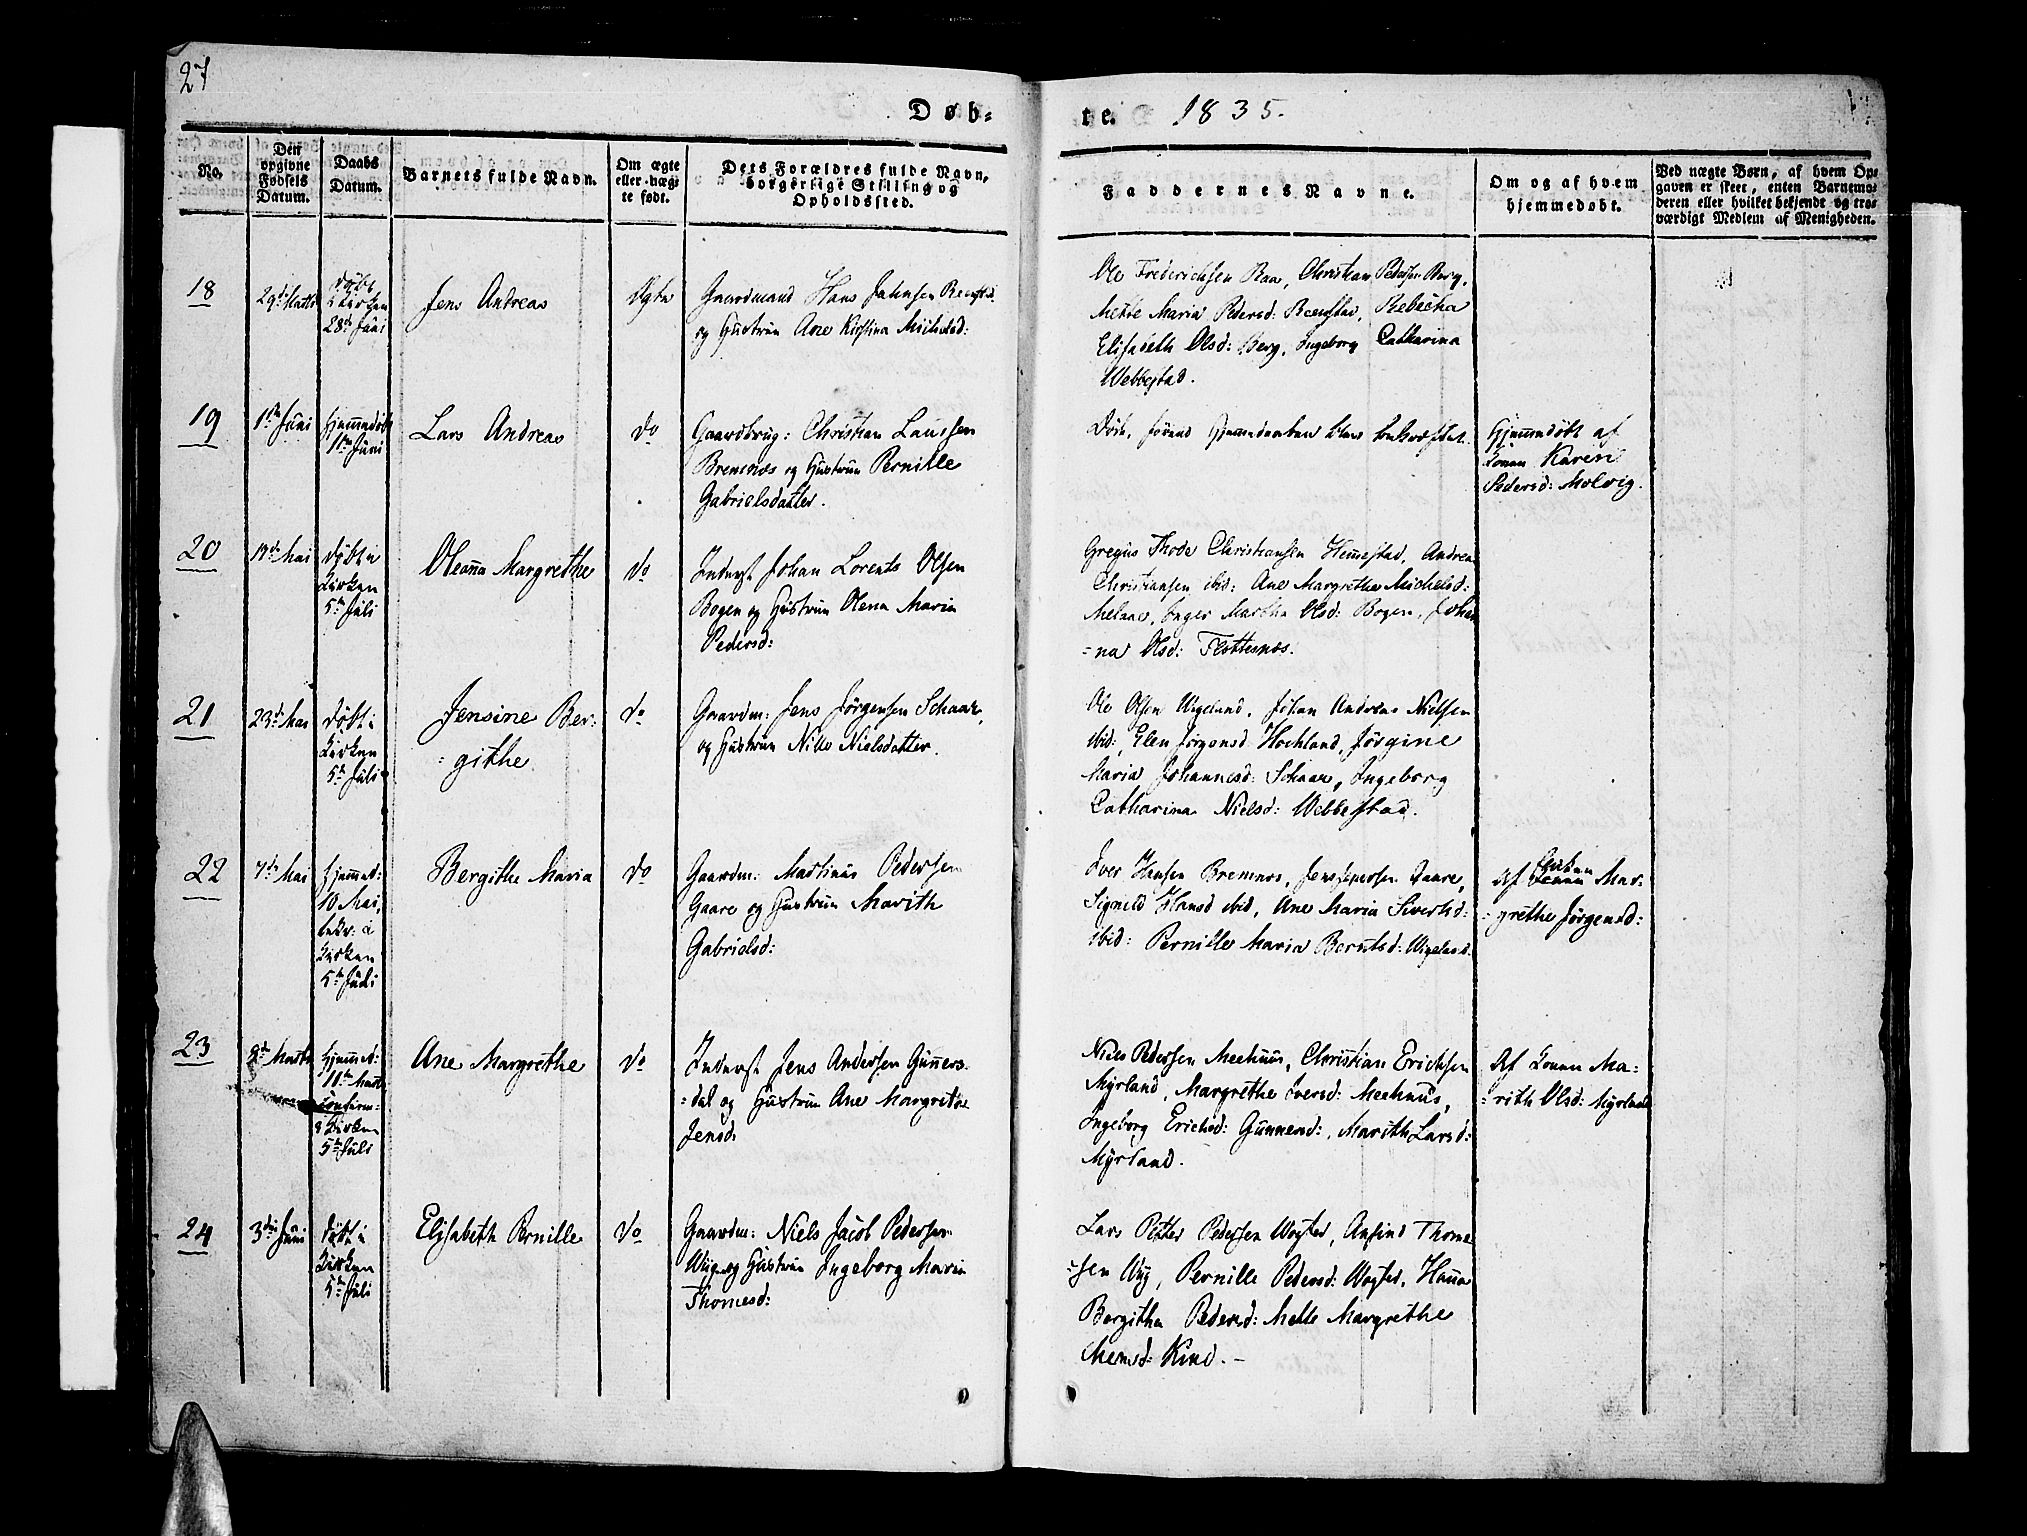 27
Døb=
te. 1835.
No.
Den
opgivne
Fødsels
Datum.
Daabs
Datum.
Barnets fulde Navn.
Om ægte
eller uæg=
te født.
Dets Forældres fulde Navn,
borgerlige Stilling og
Opholdssted.
Faddernes Navne.
Om og af hvem
hjemmedøbt.
Ved uægte Børn, af hvem Op=
gaven er skeet, enten Barnemo=
deren eller hvilket bekjendt og tro=
værdigt Medlem af Menigheden.
18
29de Marts
døbt
i Kirken
28de Juni
Jens Andreas
Ægte
Gaardmand Hans Jahnsen
og Hustrue Ane Kirstina
Ole Frederichsen Raa, Christian Pedersen Berg,
Mette Maria Pedersd: Remstad, Rebecka
Elisabeth Olsd: Berg, Ingeborg Catharina
Webbestad.
19
1ste Juni
Hjemmedøbt
1ste Juni
Lars Andreas
do
Gaardbrug: Christian Laussen
Bremnes og Hustrue Pernille
Gabrielsdatter.
Døde, førend Hjemmedaaben blev bekræftet.
Hjemmedøbt af
Konen Karen
Pedersd: Molvig.
20
13de Mai
døbt i
Kirken
5te Juli
Oleana Margrethe
do
Inderst Johan Lorents Olsen
Bogen og Hustrue Olena Maria
Pedersd:
Gregus Thode Christiansen Hemmestad, Andrea
Christiansen ibid: Ane Margrethe Michelsd:
Melaae, Inger Martha Olsd: Bogen, Johan
=na Olsd: Flottenæs.
21
23de Mai
døbt i
Kirken
5te Juli
Jensine Ber=
=githe
do
Gaardm: Jens Jørgensen Schaar,
og Hustrue Nille Nielsdatter.
Ole Olsen Wigeland, Johan Andreas Nielsen
ibid:, Elen Jørgensd Hochland, Jørgine
Maria Johannesd: Schaar, Ingeborg
Catharina Nielsd: Webbestad.
22
7de Mai
Hjemmed:
10 Mai,
bekr: i
Kirken
5te Juli
Bergithe Maria
do
Gaardm: Martinus Pedersen
Gaare og Hustrue Marith
Gabrielsd:
Iver Hansen Bremnes, Jens Gaare,
Signild Hansd ibid, Ane Maria Sivertsd:
ibid: Pernille Maria Berntsd: Wigeland.
Af Mar=
=grethe Jørgensd:
23
8de Marts
Hjemmed:
11te Marts
confirm:
i Kirken
5te Juli
Ane Margrethe
do
Inderst Jens Andersen Gunners=
=dal og Hustrue Ane Margrethe
Jensd:
Niels Pedersen Meehuus, Christian Erichsen
Myrland, Margrethe Iversd: Meehuus,
Ingeborg Erichsd: Gunnesd:, Marith Larsd:
Myrland.
Af Konen Ma=
=rith Olsd: Myrland
24
3die Juni
døbt i
Kirken
5te Juli
Elisabeth Pernille
do
Gaardm: Niels Jacob Pedersen
Wiig og Hustrue Ingeborg Maria
Thomesd:
Lars Petter Pedersen Wogted, Anfind Thome
=sen Wiig, Pernille Pedersd: Wogted, Hanna
Bergitha Pedersd: Mette Margrethe
Kind. –